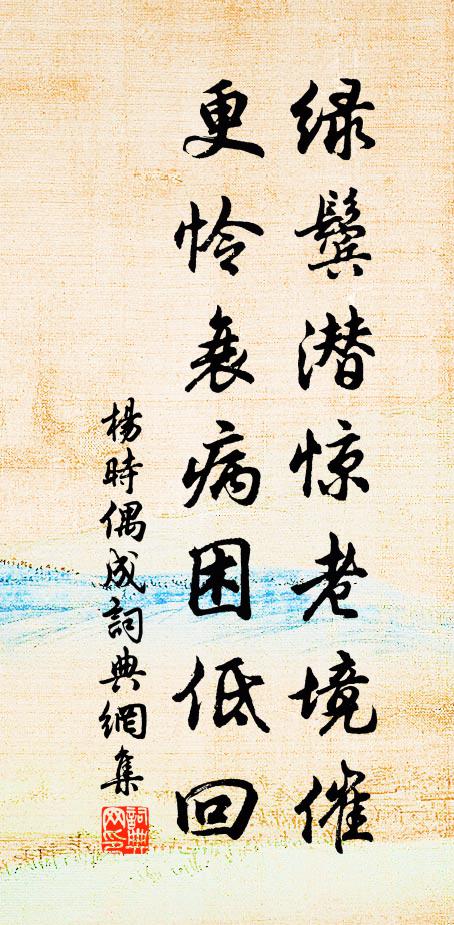 绿鬓潜惊老境催
更怜衰病困低回
楊時偶成詞典網集
詞典
网印